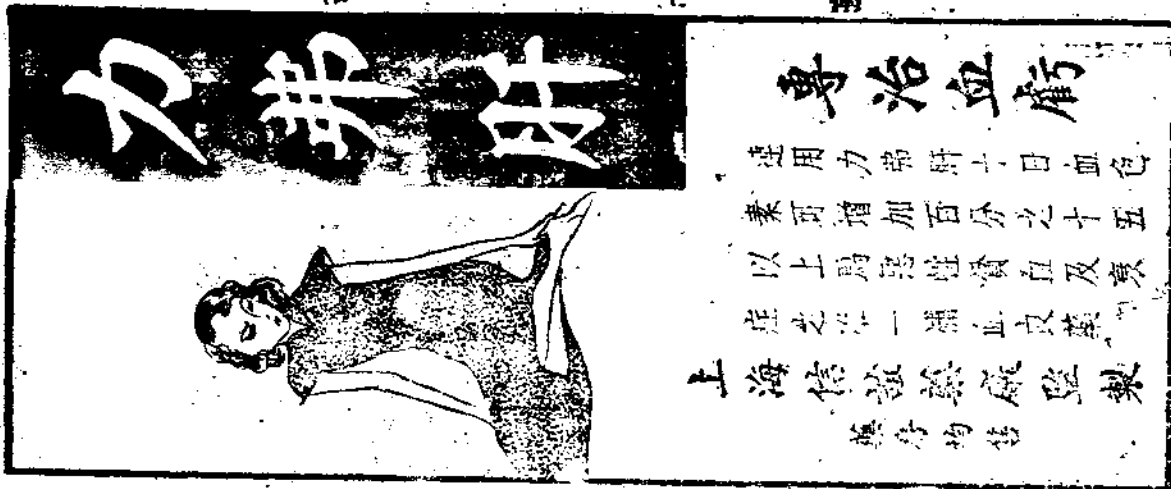 力弗肝
專治血虧
連用力弗肝十日血色
素可增加百分之十五
以上為惡性貧血及衰
症之唯一補血良藥
上海信誼藥廠監製
藥房均售